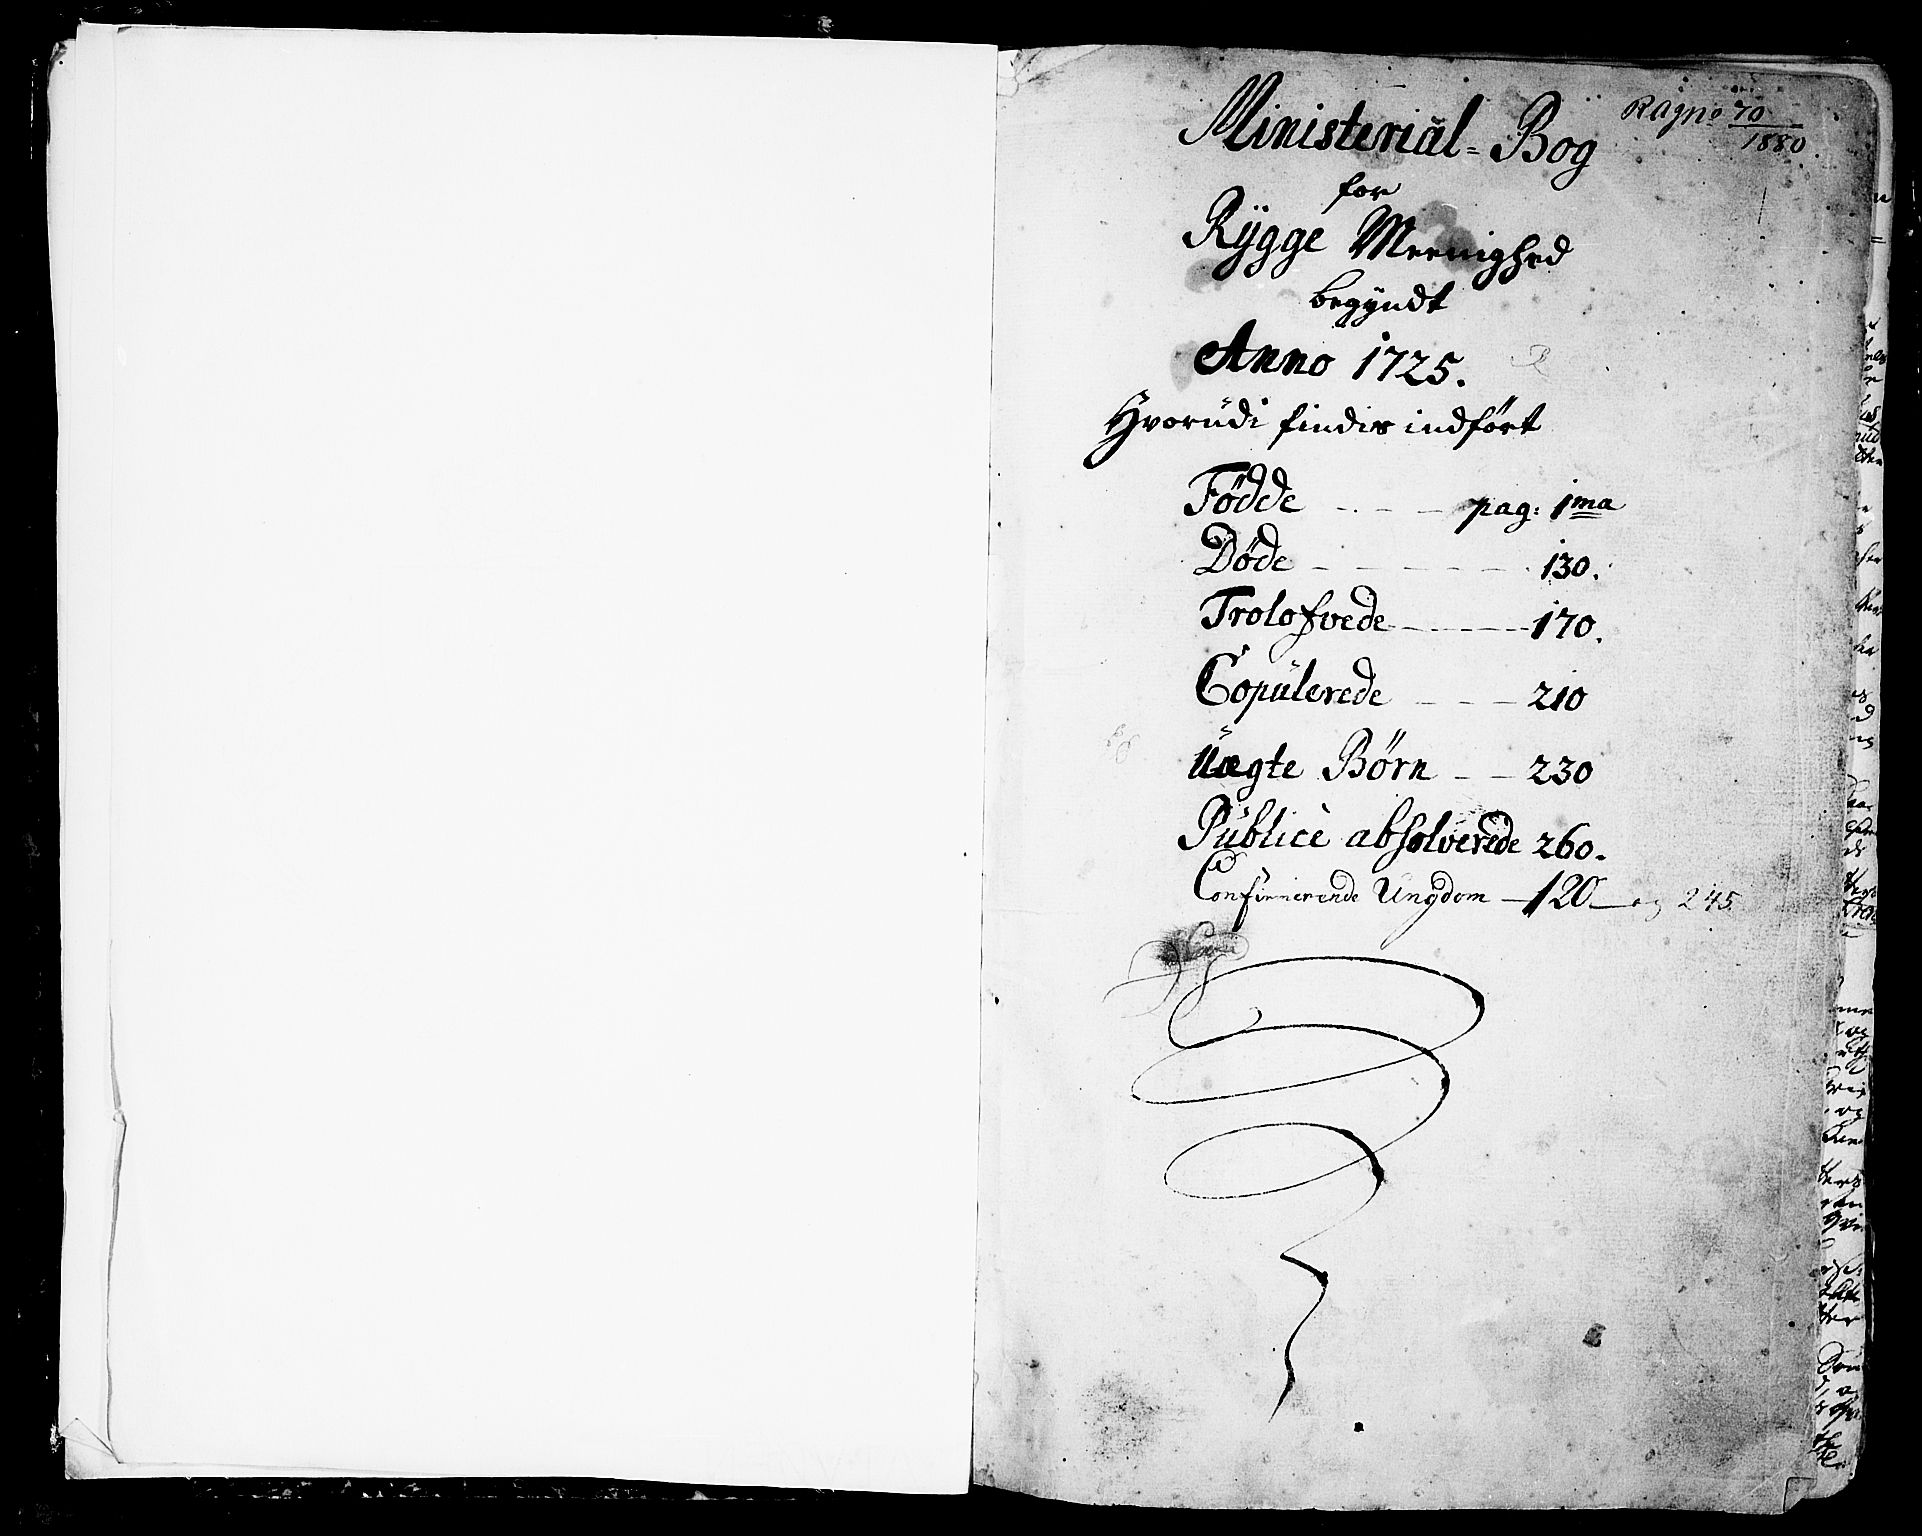 Ministerial- Bog
Ragno 70
1880
for
Rÿgge Meenighed
begyndt
Anno 1725.
Hvorudi findis indført
Fødde - - - pag: 1ma
Døde - - - - - - 130.
Trolofvede - - - - - 170.
Copulerede - - - 210
Uægte Børn - - 230
Publicè absolverede 260.
Confirmerende Ungdom - 120 - og 245.